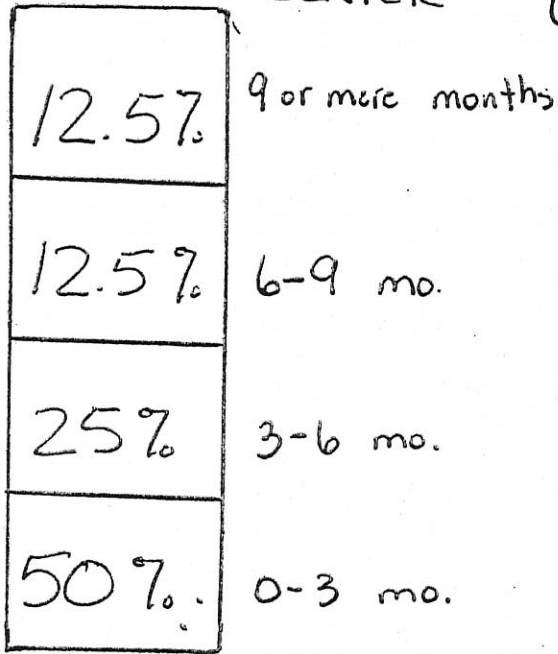 12.5% 9 or more months
12.5% 6-9 mo.
25% 3-6 mo.
50% 0-3 mo.